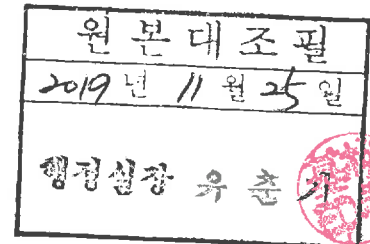 원본대조필
2019년 11월 25일
행정실장 유춘